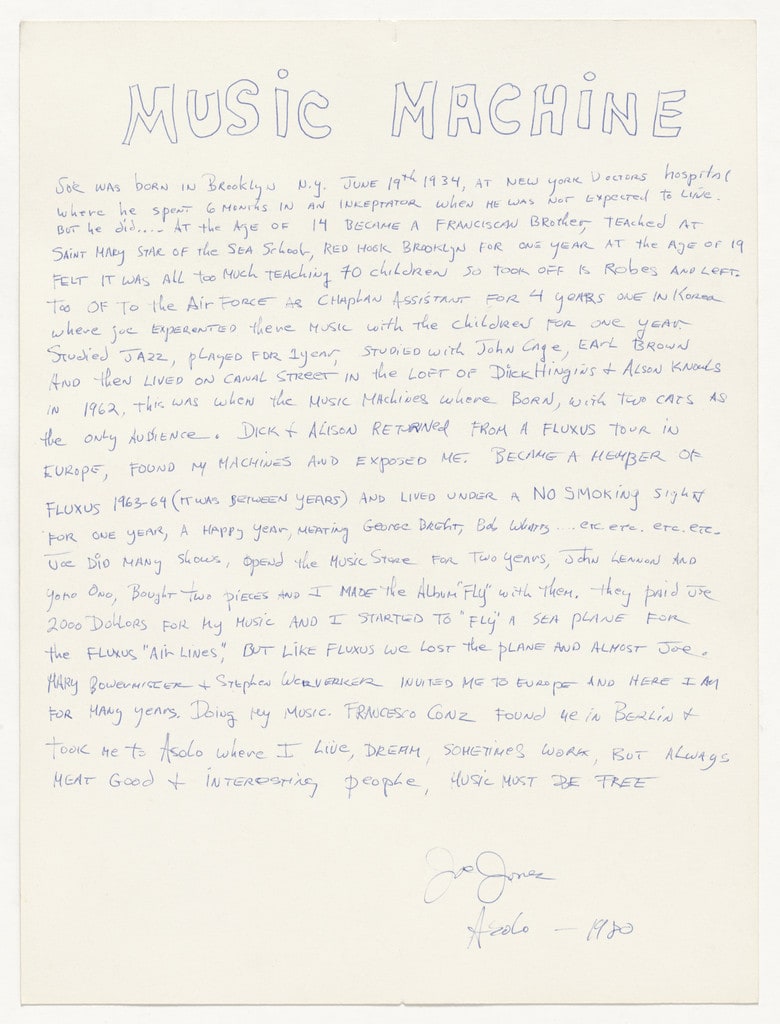 MUSiC MACHiNE
Joe WAS bORN IN BROOklyN N.y. JUNE 19th 1934, AT NEW yORK DOCTORS hospital
where he speNT 6 MONThS IN AN INKEPTATOR wheN he WAS NOT Expected to Live.
BUT he did..... At the AGE OF 14 BECAME A FRANCISCAN BRother, TEAChed AT
SAiNT MARy STAR OF the SEA School, RED HOOK BROOKLyN FOR ONE yEAR AT the AgE OF 19
FELT IT WAS ALL too Much TEAChiNg 70 childreN SO TOOK OFF IS Robes AND Left.
Too OF To the Air FORCE AS ChAplAN ASSiSTANT FOR 4 yEARS ONE IN KOREA
where joe EXPERENTED there MUSIC with the childreN FOR ONE yEAR.
Studied JAZZ, plAyed FOR 1yeAr, STUDIED with JohN CAge, EArl BROWN
AND theN LiVED ON CANAL STREET IN the LOFT OF DiCK HiNgiNS + ALSON KNOwlS
iN 1962, this WAS wheN the MUSIC MAChiNES where BORN, with TWO CATS AS
the ONly AUDIENCE. DiCK + ALiSON RETURNed FROM A FLUXUS TOUR IN
EUROPE, FOUND My MAChiNES AND EXPOSED ME. BECAME A MEMBER OF
FLUXUS 1963-64 (IT WAS BETWEEN yEARS) AND LIVED UNDER A NO SMOKiNg SighN
FOR ONE yEAR, A hAppy yEAr, MEATiNg GEORGE BREhT, Bob WhATTS .... etc. etc. etc. etc.
Joe DiD MANy Shows, OpEND the MUSIC STORE FOR TWO yEARS, JOhN LENNON AND
yoko ONO, BougHT TWO piECES AND I MADE the AlbuM "Fly" with TheM. they pAid Joe
2000 Dollors FOR My MUSIC AND I STARTED TO "Fly" A SEA PLANE FOR
the FLUXUS "Air LiNES", BUT LiKE FLUXUS we LOST the PLANE AND ALMOST Joe.
MARy BOWERMISTER + StepheN WERVERKER INVITED ME TO EUROPE AND HERE I AM
FOR MANy yEARS. DoiNg My MUSIC. FRANCESCO CONZ FOUND Me iN BERLiN +
took Me to Asolo where I Live, DREAM, SOMETiMES WORK, BUT ALwAyS
MEAT GooD + iNTEREStiNg people, MUSIC MUST BE FREE
Joe Jones
Asolo — 1980